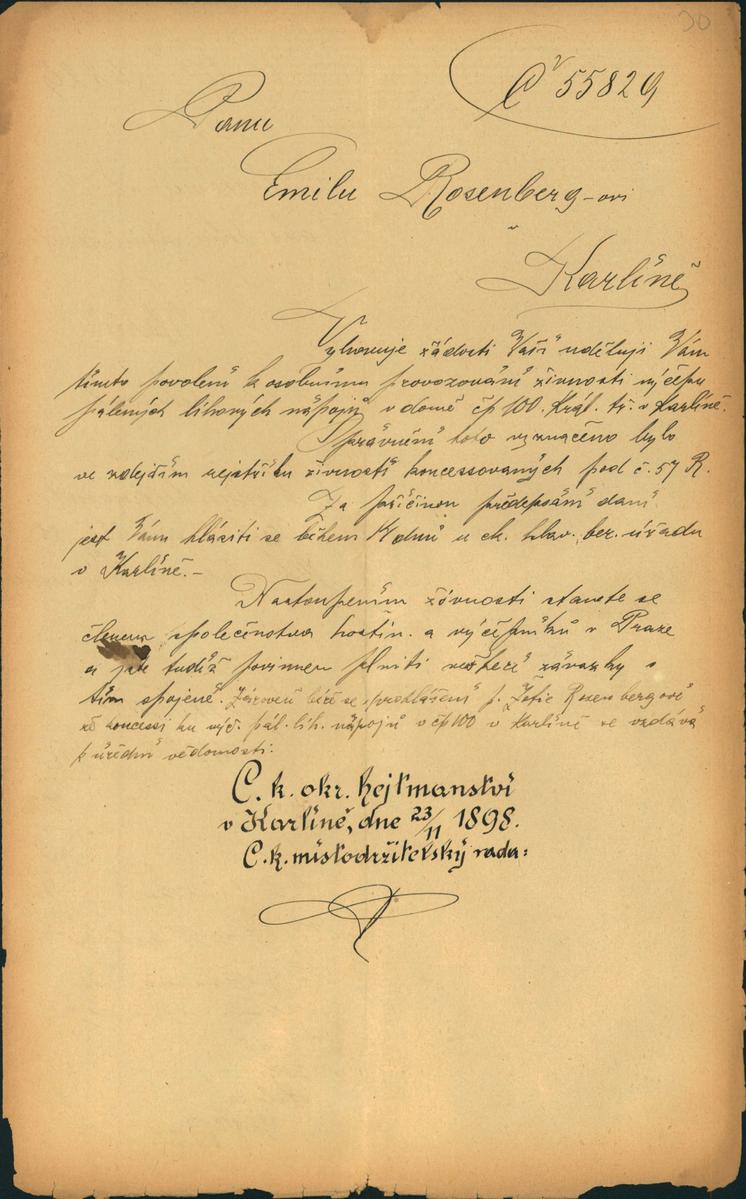 30
Č 55829
Panu
Emilu Rosenberg-ovi
v
Karlíně
Vyhovuje žádosti Vaší uděluji Vám
tímto povolení k osobnímu provozování živnosti výčepu
pálených lihových nápojů v domě čp 100. Král. tř. v Karlíně.
Oprávnění toto vyznačeno bylo
ve zdejším rejstříku živností koncessovaných pod č. 57 R.
Za příčinou předepsání daní
jest Vám hlásiti se během 14 dnů u ck. hlav. ber. úřadu
v Karlíně.-
Nastoupením živnosti stanete se
členem společenstva hostin. a výčepníků v Praze
a jste tudíž povinen plniti veškeré závazky s
tím spojené. Zároveň béře se prohlášení p. Žofie Rosenbergové
že koncessi ku výč. pál. lih. nápojů v čp 100 v Karlíně se vzdává
k úřední vědomosti.
C. k. okr. hejtmanství
v Karlíně, dne 23/11 1898.
C. k. místodržitelský rada: